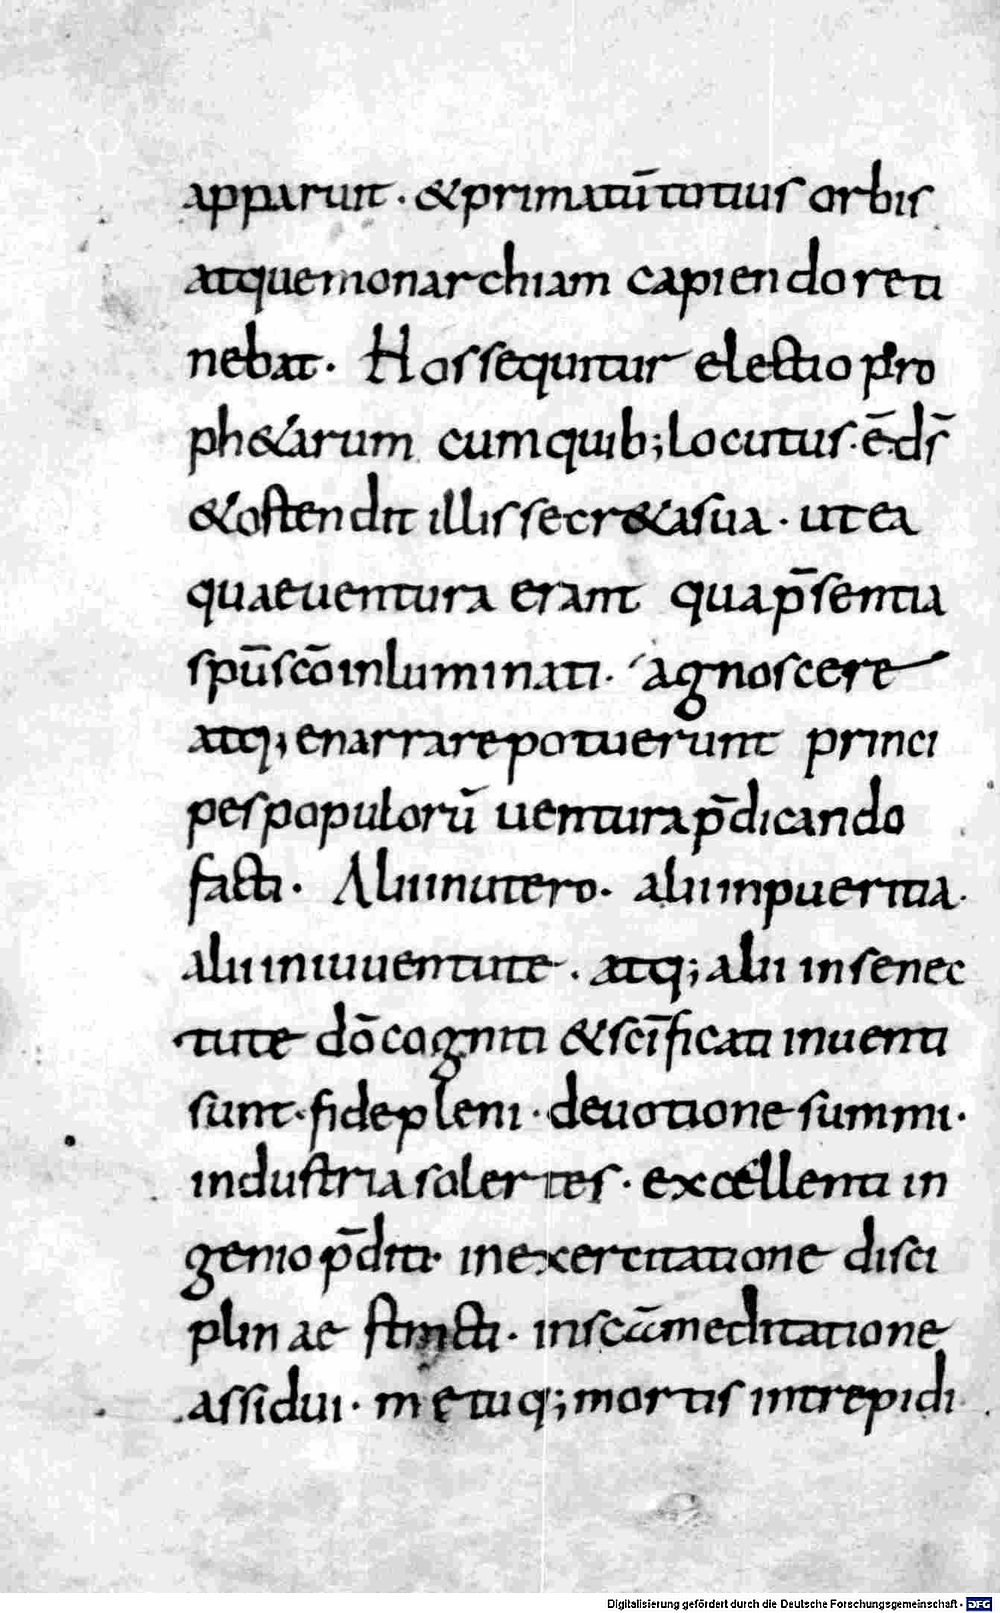 apparuit · & primatū totius orbis
atque monarchiam capiendo reti
nebat · Hos sequitur electio pro
ph&arum cum quib; locutus · ē · ds̄
& ostendit illis secr&a sua · ut ea
quae uentura erant qua p̄sentia
spū scō inluminati · agnoscere
atq; enarrare potuerunt princi
pes populorū uentura p̄dicando
facti · Alii in utero · alii in pueritia ·
alii in iuuentute · atq; alii in senec
tute dō cogniti & scīficati inuenti
sunt · fide pleni · deuotione summi ·
industria solertes · excellenti in
genio p̄diti · in exercitatione disci
plinae stincti · in scā meditatione
assidui · metuq; mortis intrepidi
Digitalisierung gefördert durch die Deutsche Forschungsgemeinschaft - DFG